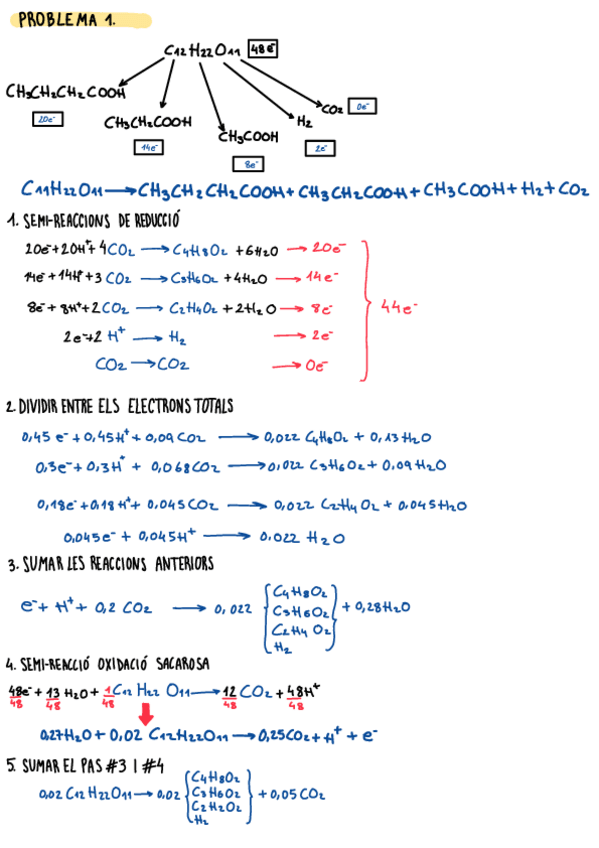 PROBLEMA 1.
C12H22O11 48e-
CH3CH2CH2COOH
20e-
CH3CH2COOH
14e-
CH3COOH
8e-
H2
2e-
CO2 0e-
C11H22O11 → CH3CH2CH2COOH + CH3CH2COOH + CH3COOH + H2 + CO2
1. SEMI-REACCIONS DE REDUCCIÓ
20e- + 20H+ + 4CO2 → C4H8O2 + 6H2O → 20e-
14e- + 14H+ + 3 CO2 → C3H6O2 + 4H2O → 14e-
8e- + 8H+ + 2CO2 → C2H4O2 + 2H2O → 8e-
2e- + 2 H+ → H2 → 2e-
CO2 → CO2 → 0e-
44e-
2. DIVIDIR ENTRE ELS ELECTRONS TOTALS
0,45 e- + 0,45H+ + 0,09 CO2 → 0,022 C4H8O2 + 0,13H2O
0,3e- + 0,3H+ + 0,068CO2 → 0,022 C3H6O2 + 0,09H2O
0,18e- + 0,18H+ + 0,045CO2 → 0,022 C2H4O2 + 0,045H2O
0,045e- + 0,045H+ → 0,022 H2O
3. SUMAR LES REACCIONS ANTERIORS
e- + H+ + 0,2 CO2 → 0,022 { C4H8O2
C3H6O2
C2H4O2
H2 } + 0,28H2O
4. SEMI-REACCIÓ OXIDACIÓ SACAROSA
48e-/48 + 13/48 H2O + 1/48 C12H22O11 → 12/48 CO2 + 48H+/48
0,27H2O + 0,02 C12H22O11 → 0,25CO2 + H+ + e-
5. SUMAR EL PAS #3 I #4
0,02 C12H22O11 → 0,02 { C4H8O2
C3H6O2
C2H2O2
H2 } + 0,05 CO2